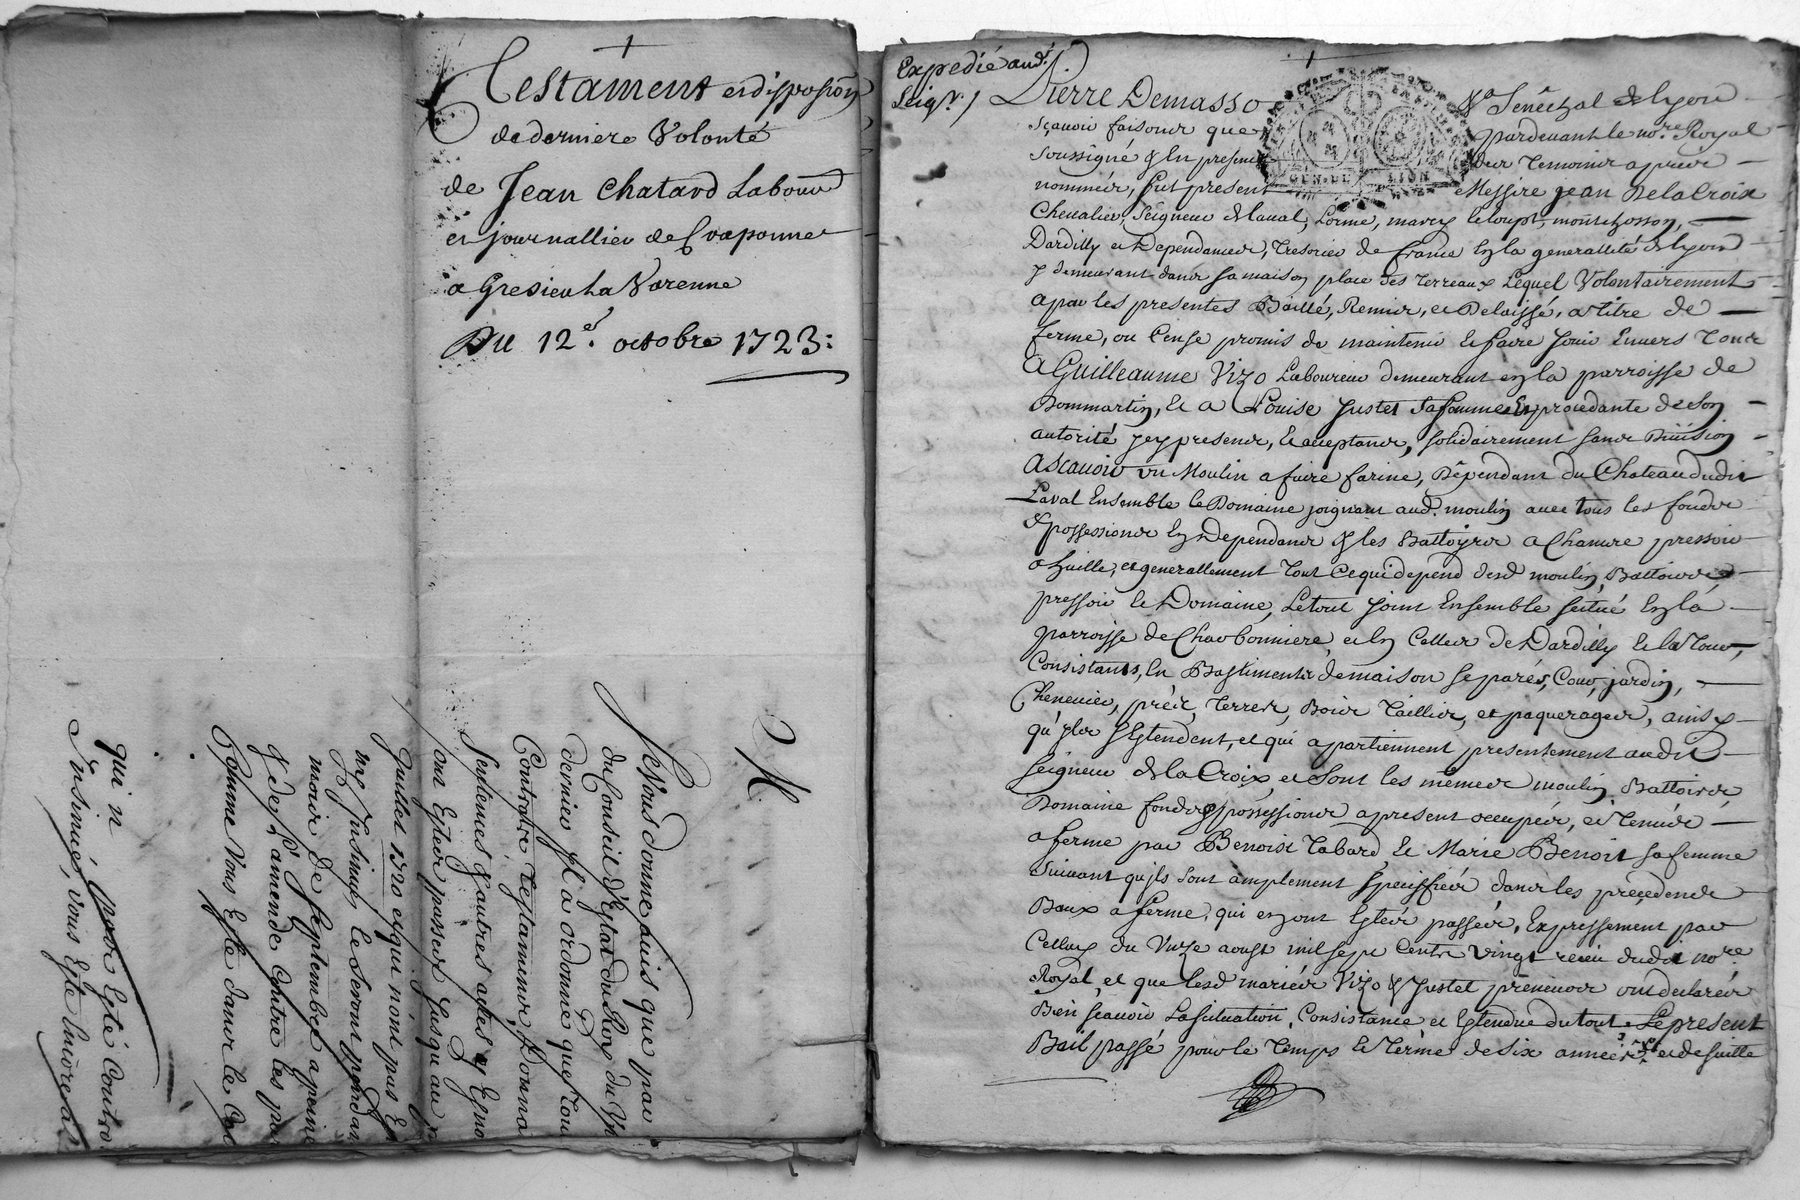 Testament et disposion
de derniere Volonté
de Jean Chatard Labour
et journallier de Craponne
a Gresieu La Varenne
Du 12e. octobre 1723:
M.
Je Vous donne auis que par
du Conseil d'Estat du Roy du
dernier Il a ordonné que tou
Contrats, Testaments, Donna
Sentences & autres actes
ont Estez passez Jusqu'au
Juillet 1720 et qui n'ont pas
le seront pendan
mois de Septembre a peine
& de d'amende Contre les
Comme Vous Este dans le
qui n'
pour Esté Contro
Insinués, vous Este Encore a
Expedié aud.
Seigr. /
Pierre Demasso Senechal de Lyon
Sçauoir faisons que pardeuant le nore. Royal
Soussigné & En presence des Temoins aprez
nommés, fut present Messire Jean Delacroix
Cheualier, Seigneur de Laual, Lorme, marcy le loup, montchosson,
Dardilly et Dependances, Tresorier de France En la generallité de Lyon
y demeurant dans sa maison place des Terreaux Lequel Volontairement
a par les presentes Baillé, Remis, et Delaissé, a titre de
ferme, ou Cense promis de maintenir & faire Jouir Enuers Tous
A Guilleaume Vizo Laboureur demeurant en la parroisse de
Dommartin, & a Louise Justet Sa femme En procedante de Son
autorité y presents, & acceptants, Solidairement Sans Diuision
Ascauoir un Moulin a faire farine, Dependant du Chateau dudit
Laval Ensemble le Domaine joignant aud. moulin auec tous les fonds
& possessions En Dependants & les Battoirs a Chanure pressoir
a huille, et generallement Tout Ce qui depend desd moulin, Battoirs,
pressoir & Domaine, Le tout Joint Ensemble scitué En la
parroisse de Charbonniere, et En Celles de Dardilly & la Tour,
Consistants, En Bastiments de maison separés, Cour, jardin,
Cheneuier, préz, Terres, Bois Taillis, et paquerages, ainsy
qu'ils S'Estendent, et qui apartiennent presentement audit
Seigneur de la Croix et Sont les mêmes moulin, Battoirs,
Domaine fonds & possessions a present occupés, et Tenus
a ferme par Benoist Tabard & Marie Benoit sa femme
Suiuant qu'ils Sont amplement Speciffiés dans les precedents
Baux a ferme, qui en ont Estés passés, Expressement par
Celluy du Unze aoust mil sept Cents Vingt receu dudit nore
Royal, et que lesd mariés Vizo & Justet preneurs ont declarés
Bien scauoir La scituation, Consistance, et Estendue du tout. Le present
Bail passé pour le Temps & Terme de Six années et de suitte